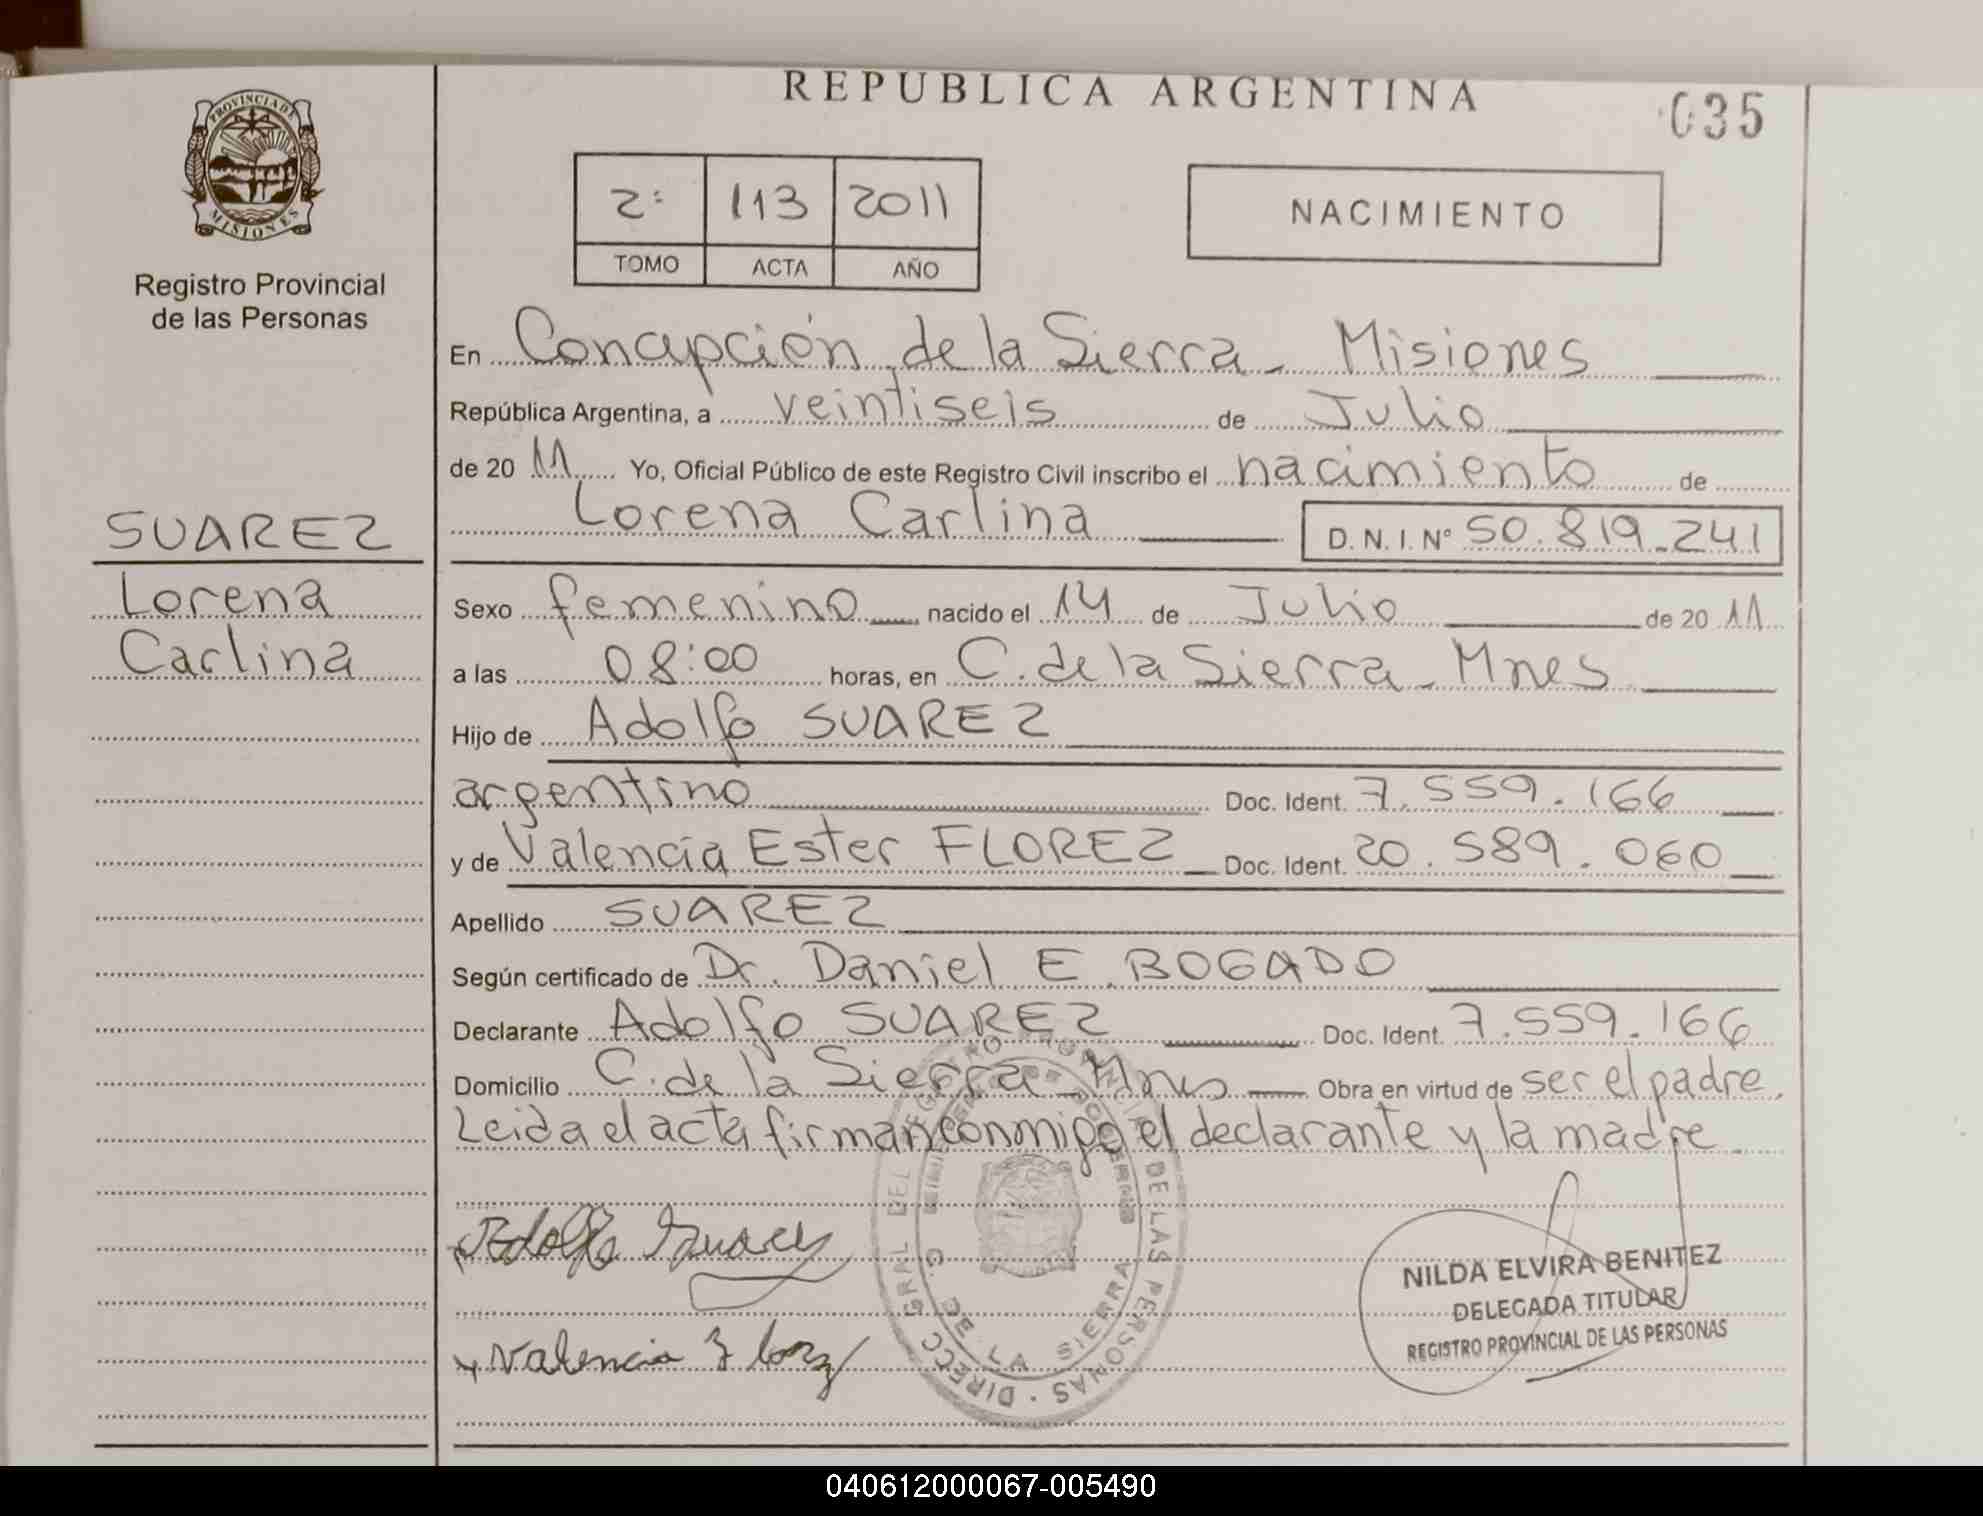 REPUBLICA ARGENTINA
035
PROVINCIA DE
MISIONES
Registro Provincial
de las Personas
2º 113 2011
TOMO ACTA AÑO
NACIMIENTO
En Concepción de la Sierra - Misiones
República Argentina, a veintiseis de Julio
de 20 11 Yo, Oficial Público de este Registro Civil inscribo el nacimiento de
Lorena Carlina D.N.I. Nº 50.819.241
SUAREZ
Lorena
Carlina
Sexo femenino nacido el 14 de Julio de 20 11
a las 08:00 horas, en C. de la Sierra - Mnes
Hijo de Adolfo SUAREZ
argentino Doc. Ident. 7.559.166
y de Valencia Ester FLOREZ Doc. Ident. 20.589.060
Apellido SUAREZ
Según certificado de Dr. Daniel E. BOGADO
Declarante Adolfo SUAREZ Doc. Ident. 7.559.166
Domicilio C. de la Sierra - Mnes Obra en virtud de ser el padre.
Leida el acta firman conmigo el declarante y la madre
Adolfo Suarez
Valencia Florez
DIRECC GRAL DEL REGISTRO PROVINCIAL DE LAS PERSONAS
C. DE LA SIERRA
NILDA ELVIRA BENITEZ
DELEGADA TITULAR
REGISTRO PROVINCIAL DE LAS PERSONAS
040612000067-005490